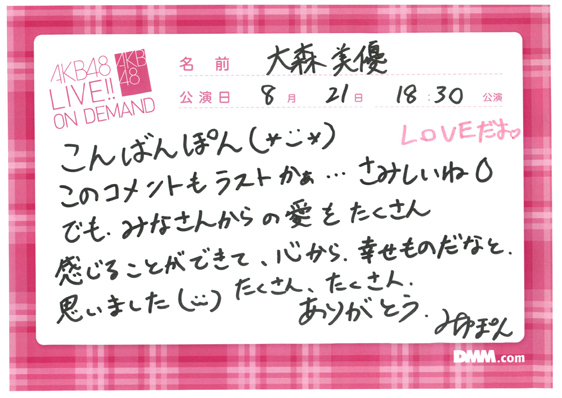 AKB48
LIVE!!
ON DEMAND
AKB
48
名前 大森美優
公演日 8月 21日 18:30 公演
LOVEだよ♡
こんばんぽん(*¨*)
このコメントもラストかぁ… さみしいね
でも、みなさんからの愛をたくさん
感じることができて、心から、幸せものだなと、
思いました(¨) たくさん、たくさん、
ありがとう、
みゆぽん
DMM.com